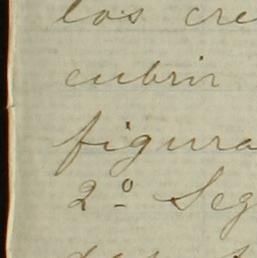 los cre
cubrir
figura
2º Seg